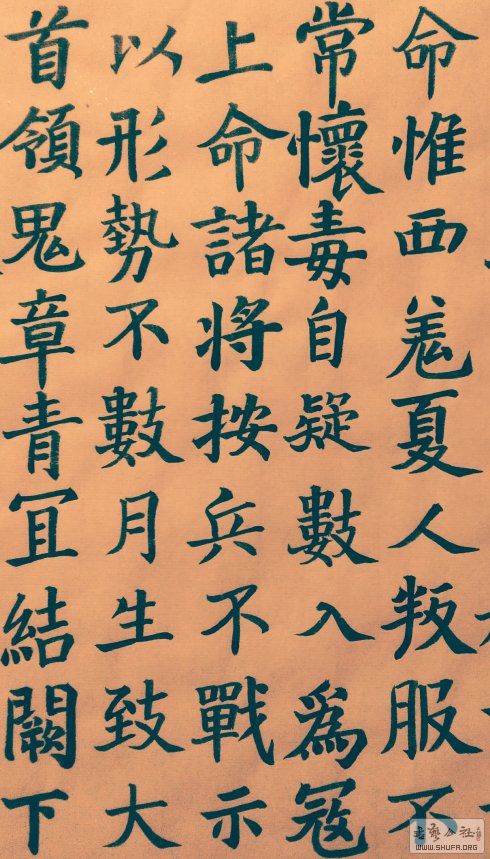 命惟西羌夏人叛服不
常懷毒自疑數入爲冦
上命諸將按兵不戰示
以形勢不數月生致大
首領鬼章青冝結闕下
WWW.SHUFA.ORG